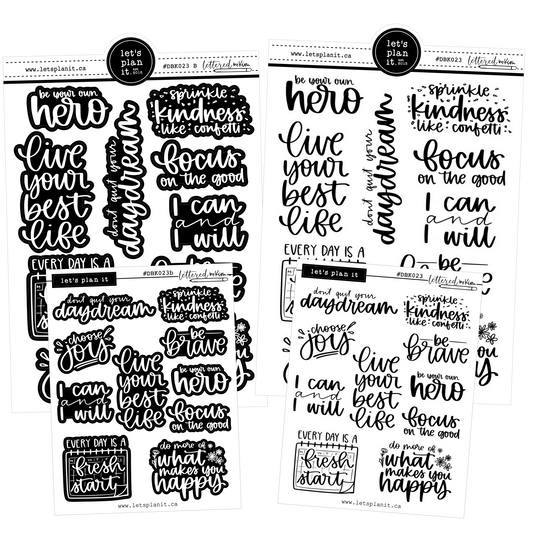 let's
plan
it.
EST. 2015
www.letsplanit.ca
#DBK023 B
lettered by Kim
be your own
hero
sprinkle
kindness
like confetti
live
your
best
life
don't quit your
daydream
focus
on the good
I can
and
I will
EVERY DAY IS A
let's
plan
it.
EST. 2015
www.letsplanit.ca
#DBK023
be your own
hero
sprinkle
kindness
like confetti
live
your
best
life
don't quit your
daydream
focus
on the good
I can
and
I will
EVERY DAY IS A
you
let's plan it
#DBK023b
don't quit your
daydream
sprinkle
kindness
like confetti
choose
joy
be
brave
live
your
best
life
I can
and
I will
be your own
hero
focus
on the good
EVERY DAY IS A
fresh
start
do more of
what
makes you
happy
www.letsplanit.ca
let's plan it
#DBK023
don't quit your
daydream
sprinkle
kindness
like confetti
choose
joy
be
brave
live
your
best
life
I can
and
I will
be your own
hero
focus
on the good
EVERY DAY IS A
fresh
start
do more of
what
makes you
happy
www.letsplanit.ca